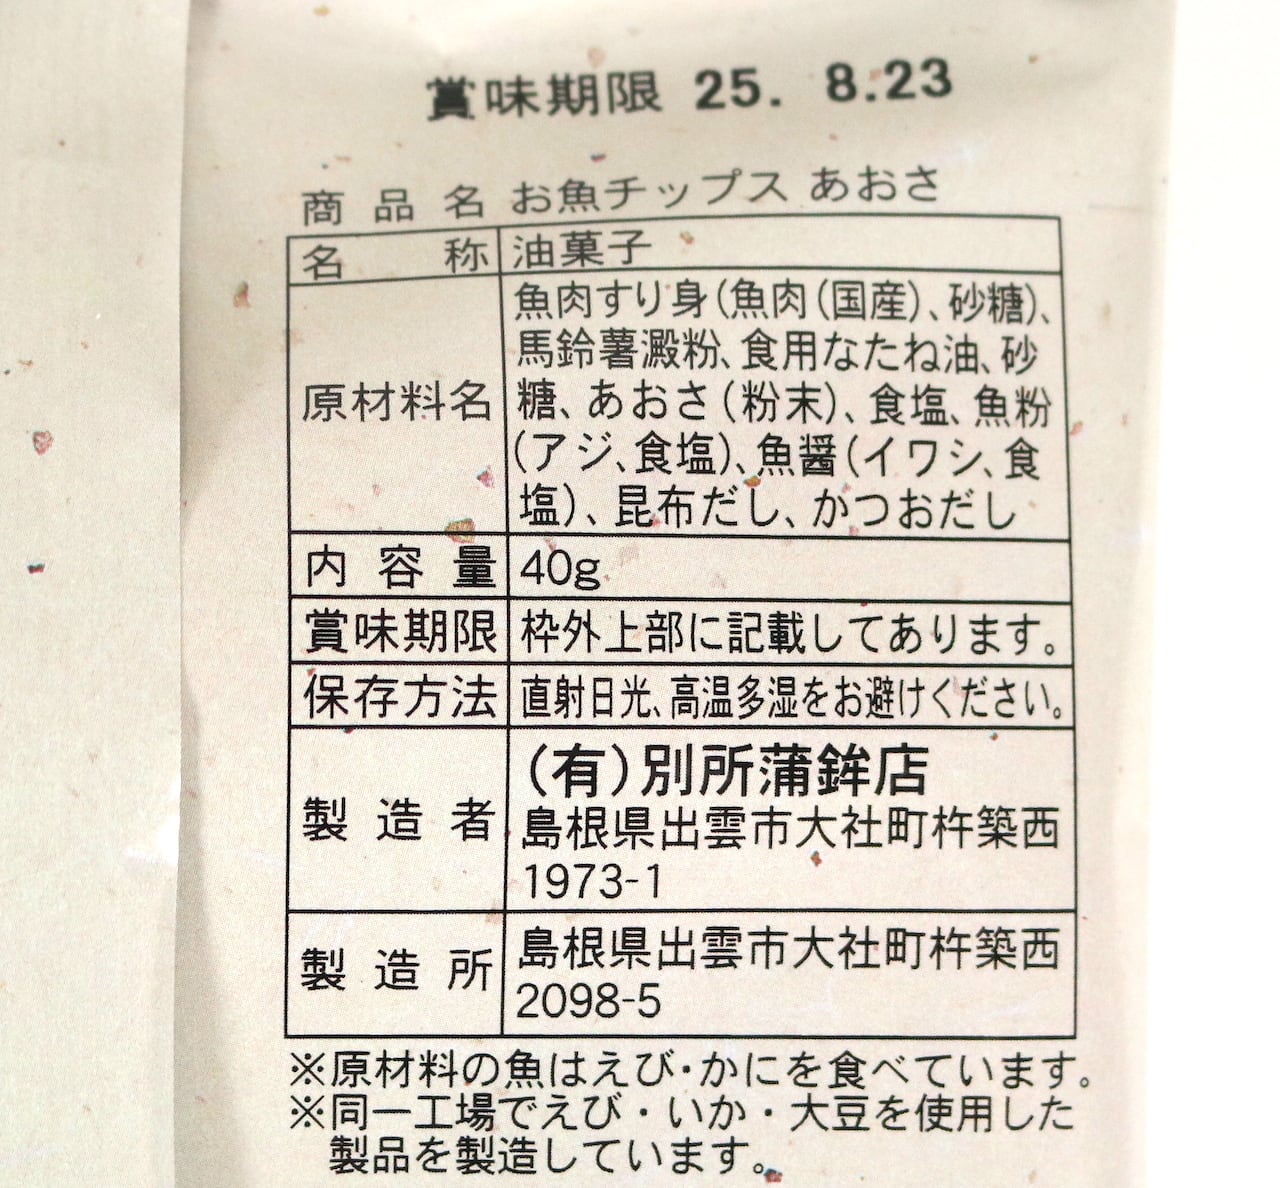 賞味期限 25. 8.23
商品名 お魚チップス あおさ
名称 油菓子
原材料名 魚肉すり身(魚肉(国産)、砂糖)、
馬鈴薯澱粉、食用なたね油、砂
糖、あおさ(粉末)、食塩、魚粉
(アジ、食塩)、魚醤(イワシ、食
塩)、昆布だし、かつおだし
内容量 40g
賞味期限 枠外上部に記載してあります。
保存方法 直射日光、高温多湿をお避けください。
製造者 (有)別所蒲鉾店
島根県出雲市大社町杵築西
1973-1
製造所 島根県出雲市大社町杵築西
2098-5
※原材料の魚はえび・かにを食べています。
※同一工場でえび・いか・大豆を使用した
製品を製造しています。